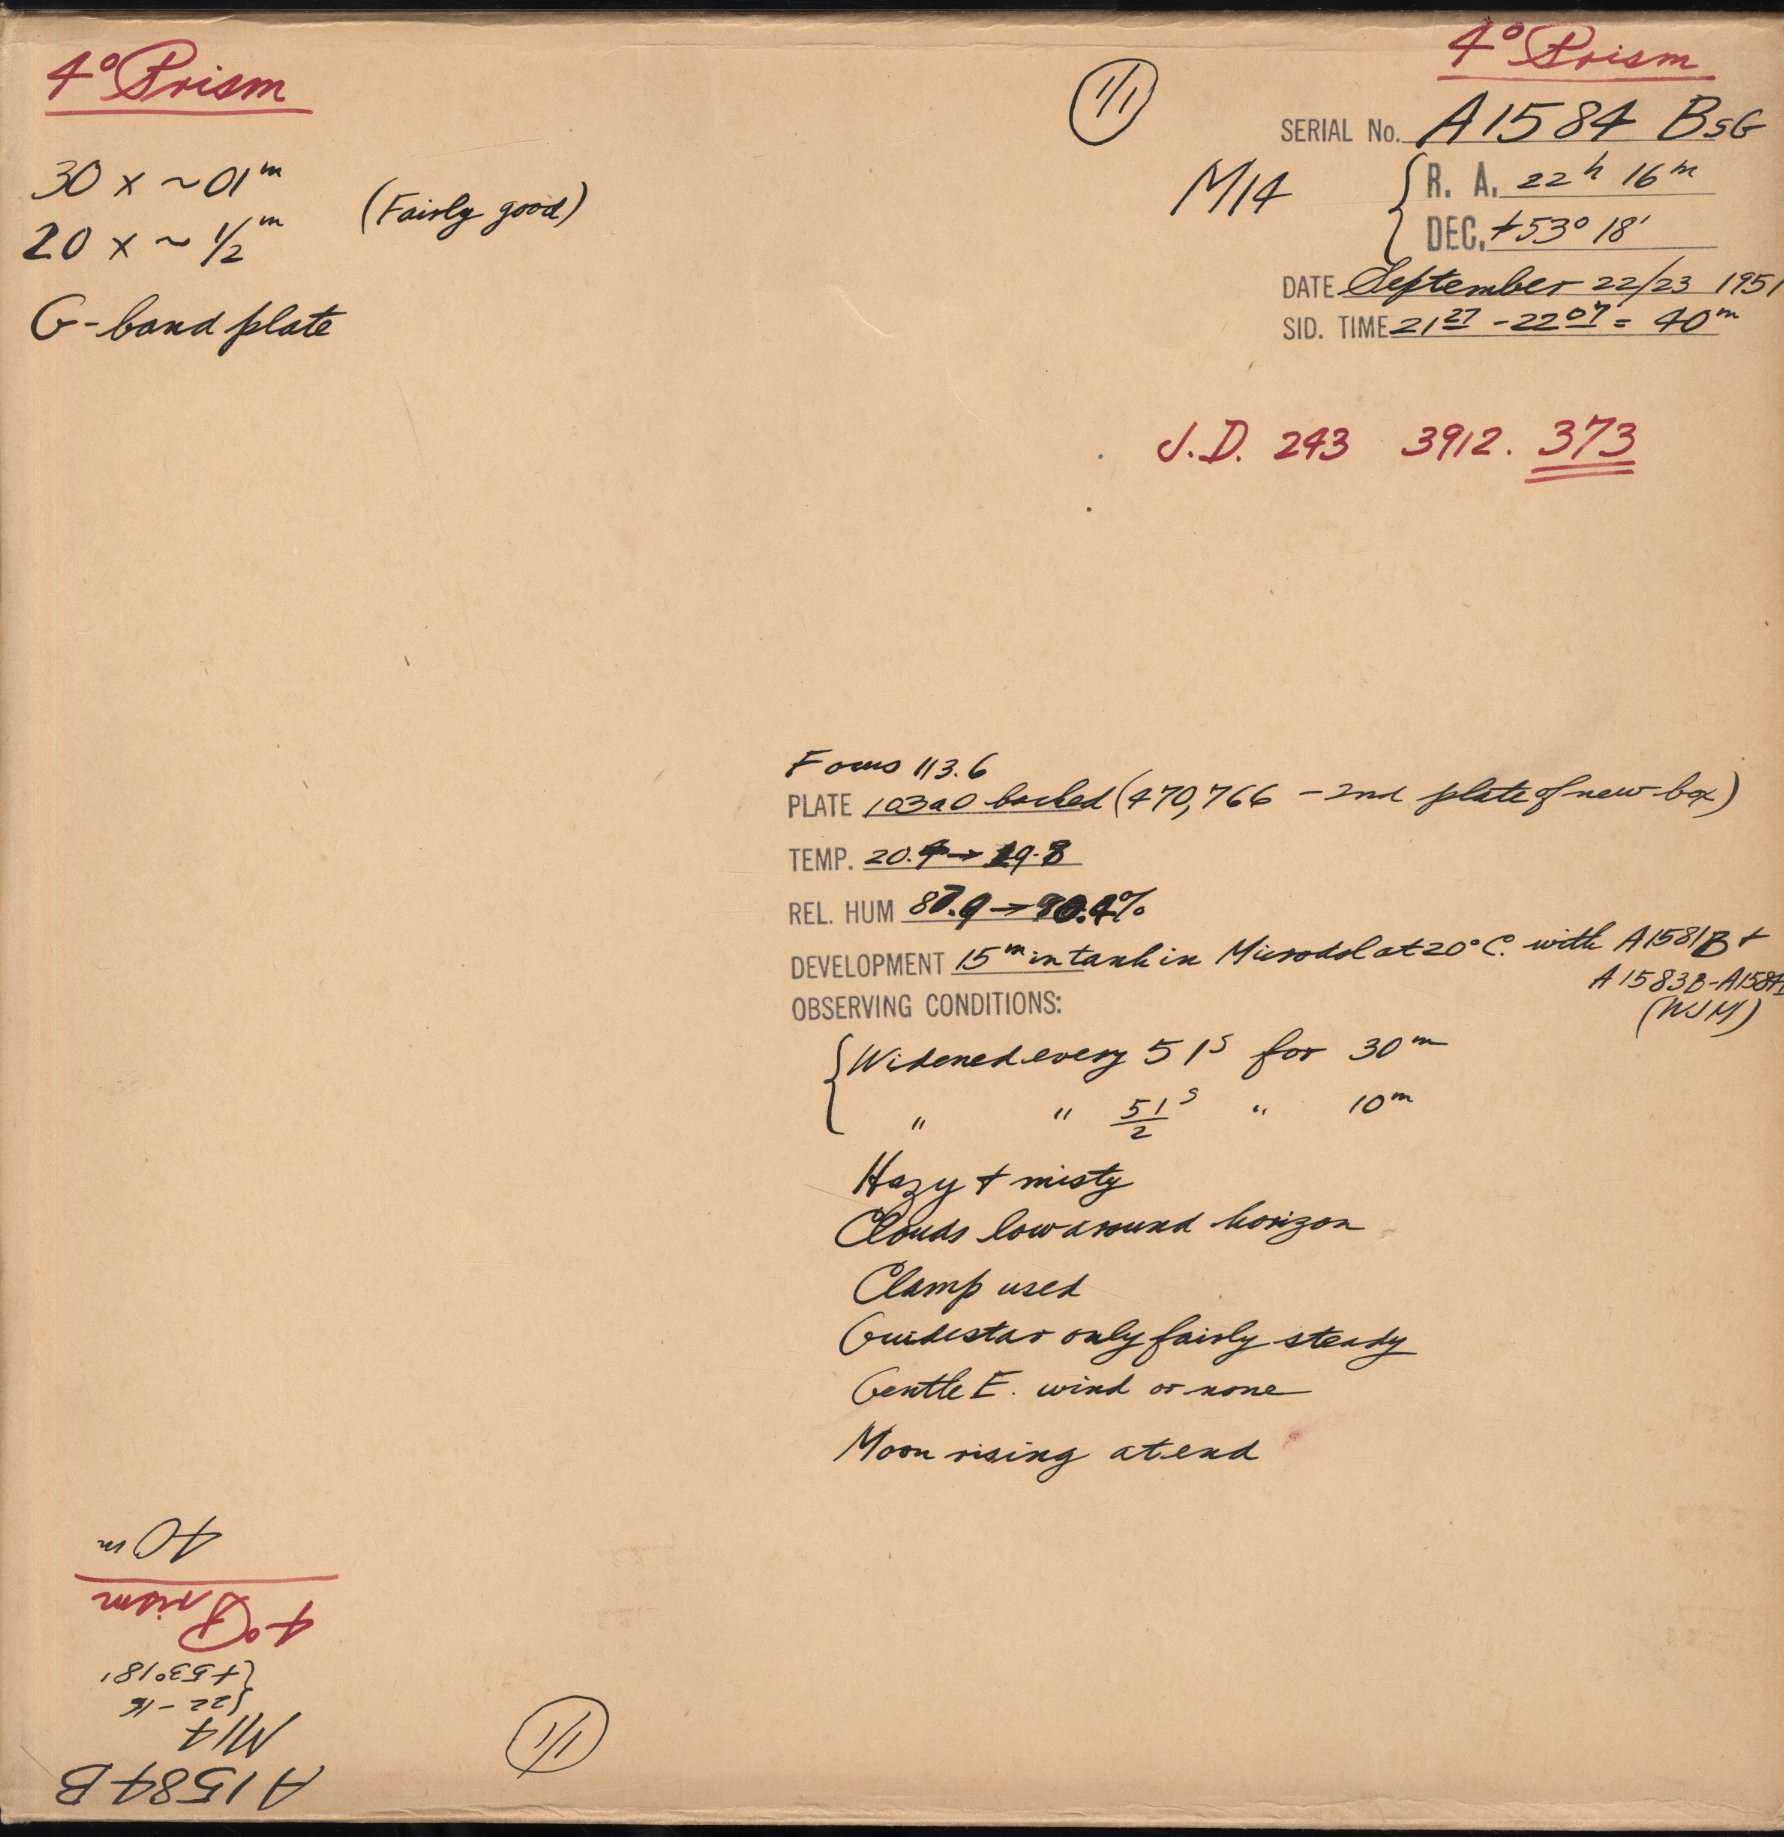 4° Prism
30 x ~01ᵐ
20 x ~ 1/2ᵐ
(Fairly good)
G-band plate
1/1
4° Prism
SERIAL No. A1584 BsG
M14
R. A. 22ʰ 16ᵐ
DEC. +53° 18'
DATE September 22/23 1951
SID. TIME 21 27 - 22 07 = 40ᵐ
J.D. 243 3912. 373
Focus 113.6
PLATE 103aO backed (470,766 - 2nd plate of new box)
TEMP. 20.4 → 19.8
REL. HUM 87.9 → 90.4%
DEVELOPMENT 15ᵐ in tank in Microdol at 20° C. with A1581B +
A1583B-A1584B
(WJM)
OBSERVING CONDITIONS:
Widened every 51ˢ for 30ᵐ
" " 51/2ˢ " 10ᵐ
Hazy + misty
Clouds low around horizon
Clamp used
Guidestar only fairly steady
Gentle E. wind or none
Moon rising at end
A1584B
M14
22 - 16
+53° 18'
4° Prism
40ᵐ
1/1